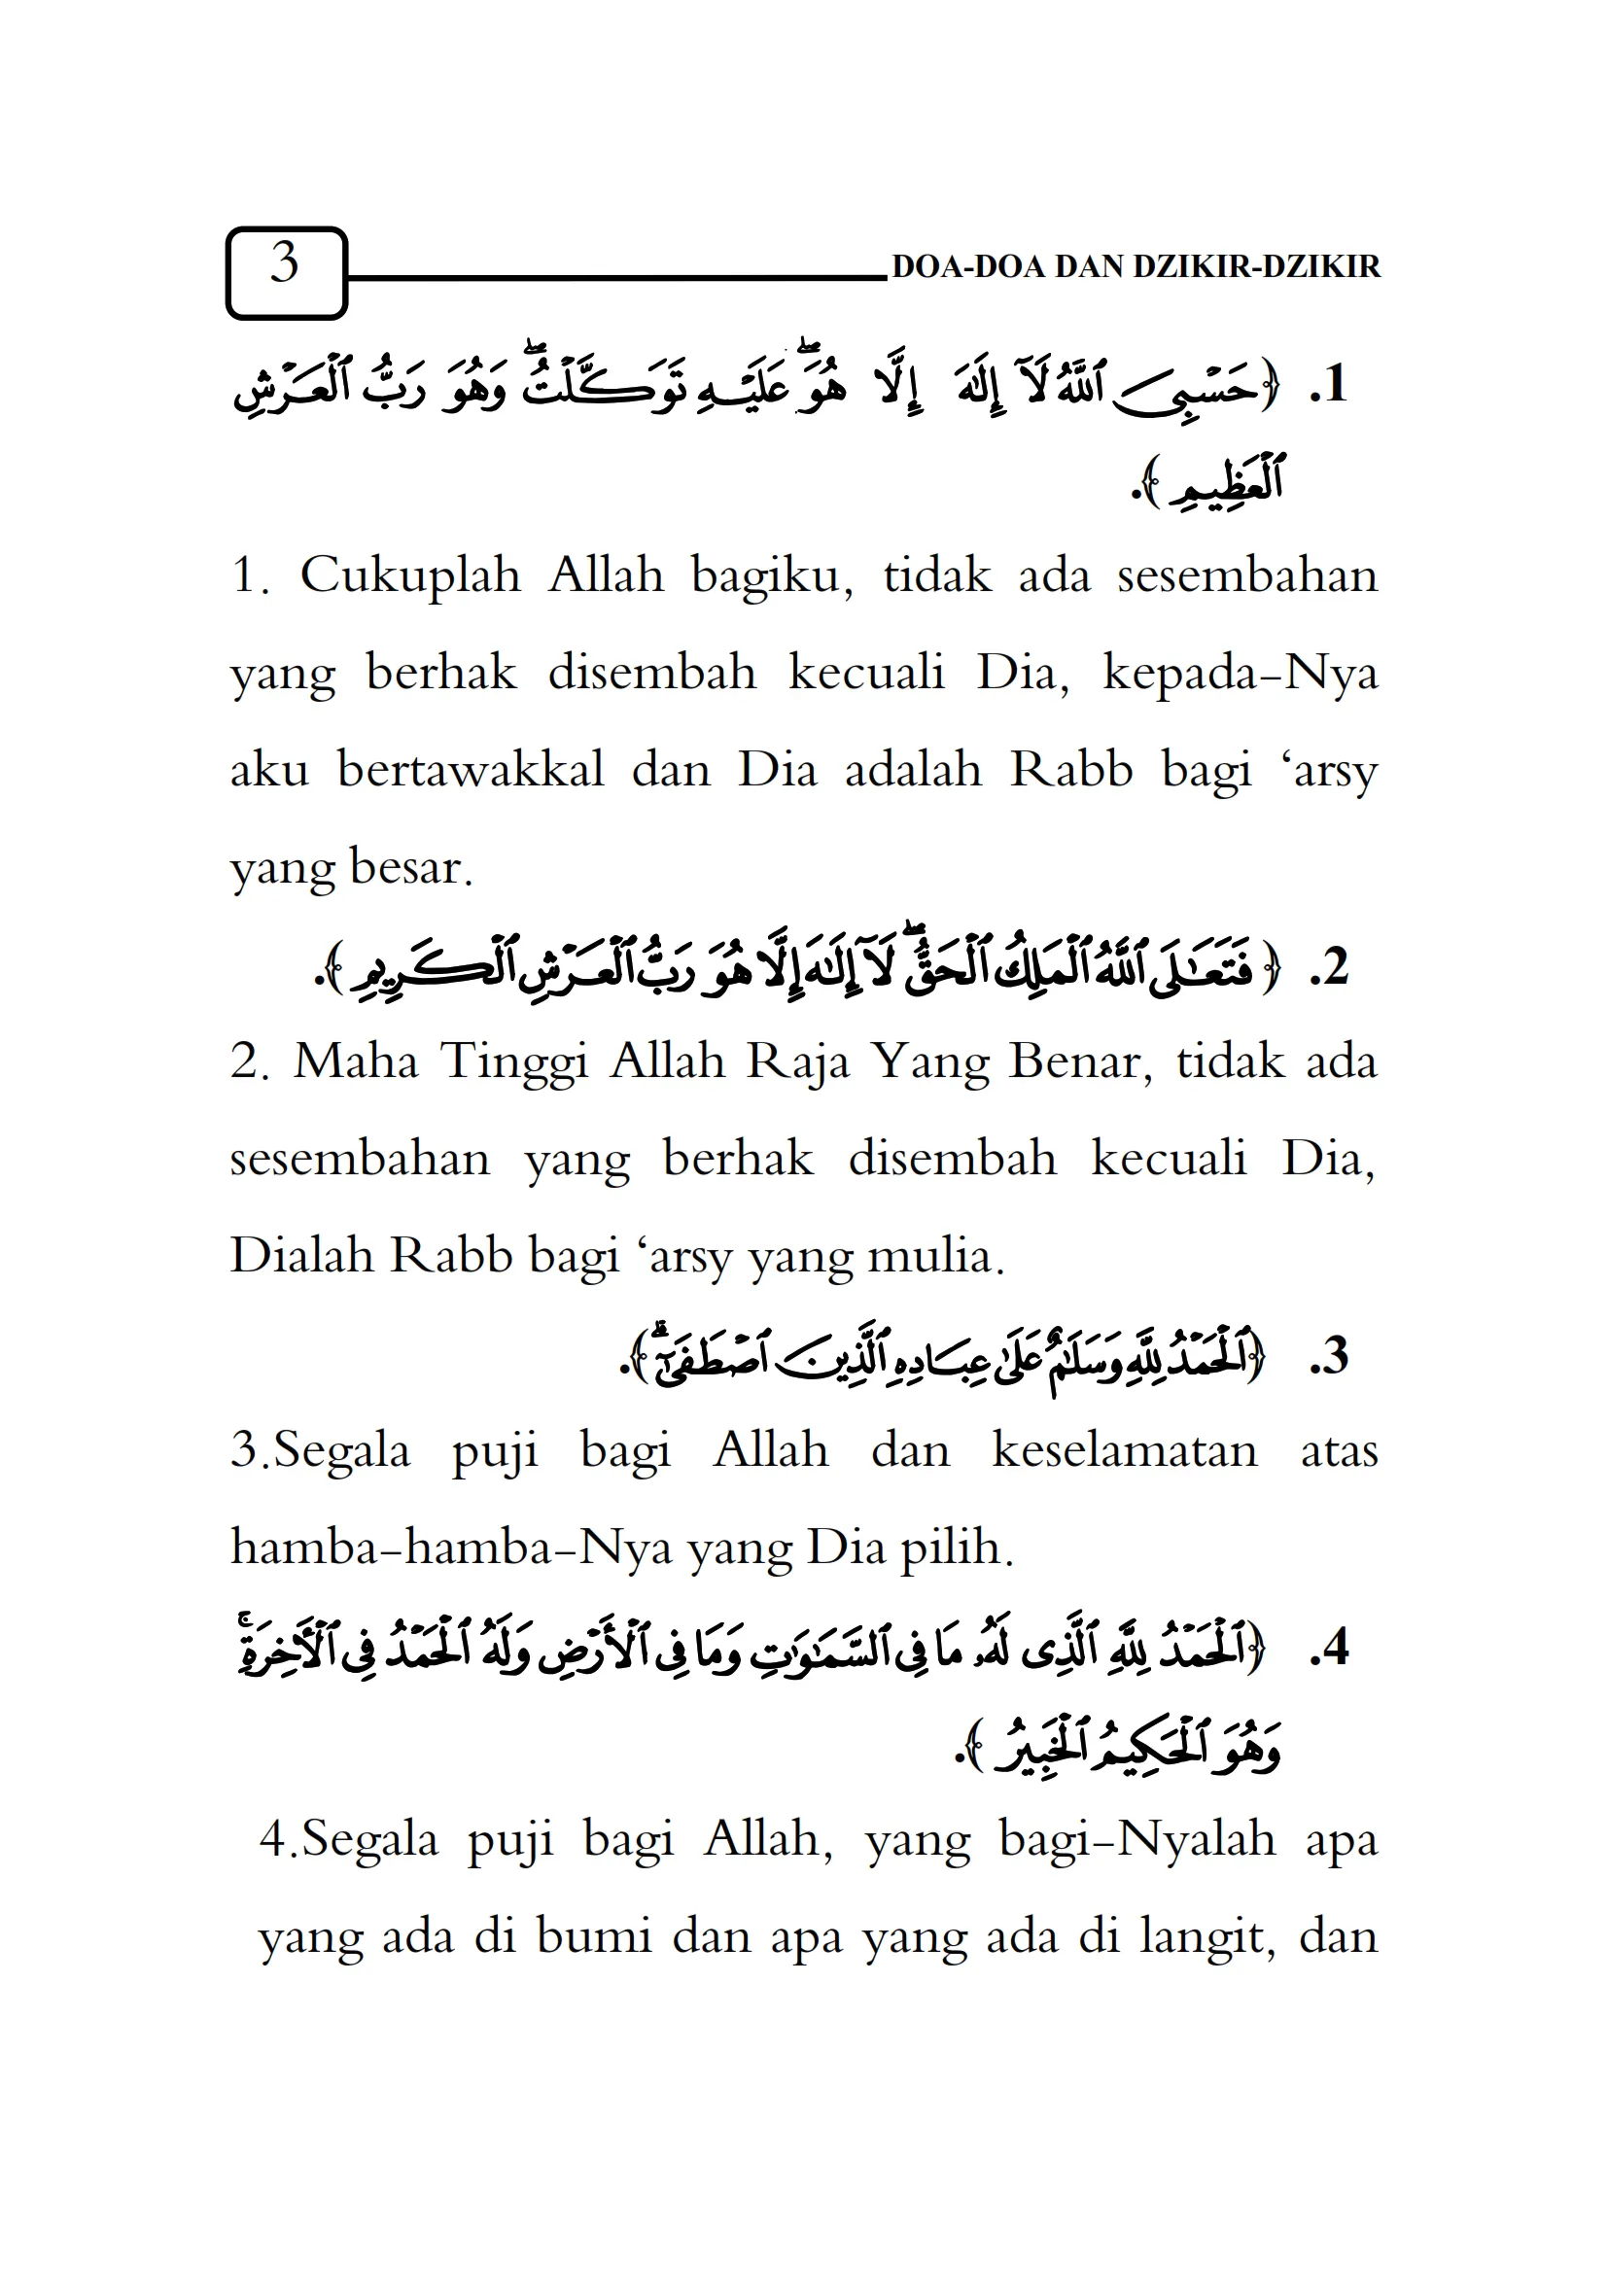 3
DOA-DOA DAN DZIKIR-DZIKIR
1. ﴿حَسْبِيَ ٱللَّهُ لَآ إِلَٰهَ إِلَّا هُوَۖ عَلَيْهِ تَوَكَّلْتُۖ وَهُوَ رَبُّ ٱلْعَرْشِ
ٱلْعَظِيمِ ﴾.
1. Cukuplah Allah bagiku, tidak ada sesembahan
yang berhak disembah kecuali Dia, kepada-Nya
aku bertawakkal dan Dia adalah Rabb bagi ‘arsy
yang besar.
2. ﴿ فَتَعَٰلَى ٱللَّهُ ٱلْمَلِكُ ٱلْحَقُّۖ لَآ إِلَٰهَ إِلَّا هُوَ رَبُّ ٱلْعَرْشِ ٱلْكَرِيمِ ﴾.
2. Maha Tinggi Allah Raja Yang Benar, tidak ada
sesembahan yang berhak disembah kecuali Dia,
Dialah Rabb bagi ‘arsy yang mulia.
3. ﴿ٱلْحَمْدُ لِلَّهِ وَسَلَٰمٌ عَلَىٰ عِبَادِهِ ٱلَّذِينَ ٱصْطَفَىٰٓۗ﴾.
3.Segala puji bagi Allah dan keselamatan atas
hamba-hamba-Nya yang Dia pilih.
4. ﴿ٱلْحَمْدُ لِلَّهِ ٱلَّذِى لَهُۥ مَا فِى ٱلسَّمَٰوَٰتِ وَمَا فِى ٱلْأَرْضِ وَلَهُ ٱلْحَمْدُ فِى ٱلْأَخِرَةِۚ
وَهُوَ ٱلْحَكِيمُ ٱلْخَبِيرُ ﴾.
4.Segala puji bagi Allah, yang bagi-Nyalah apa
yang ada di bumi dan apa yang ada di langit, dan